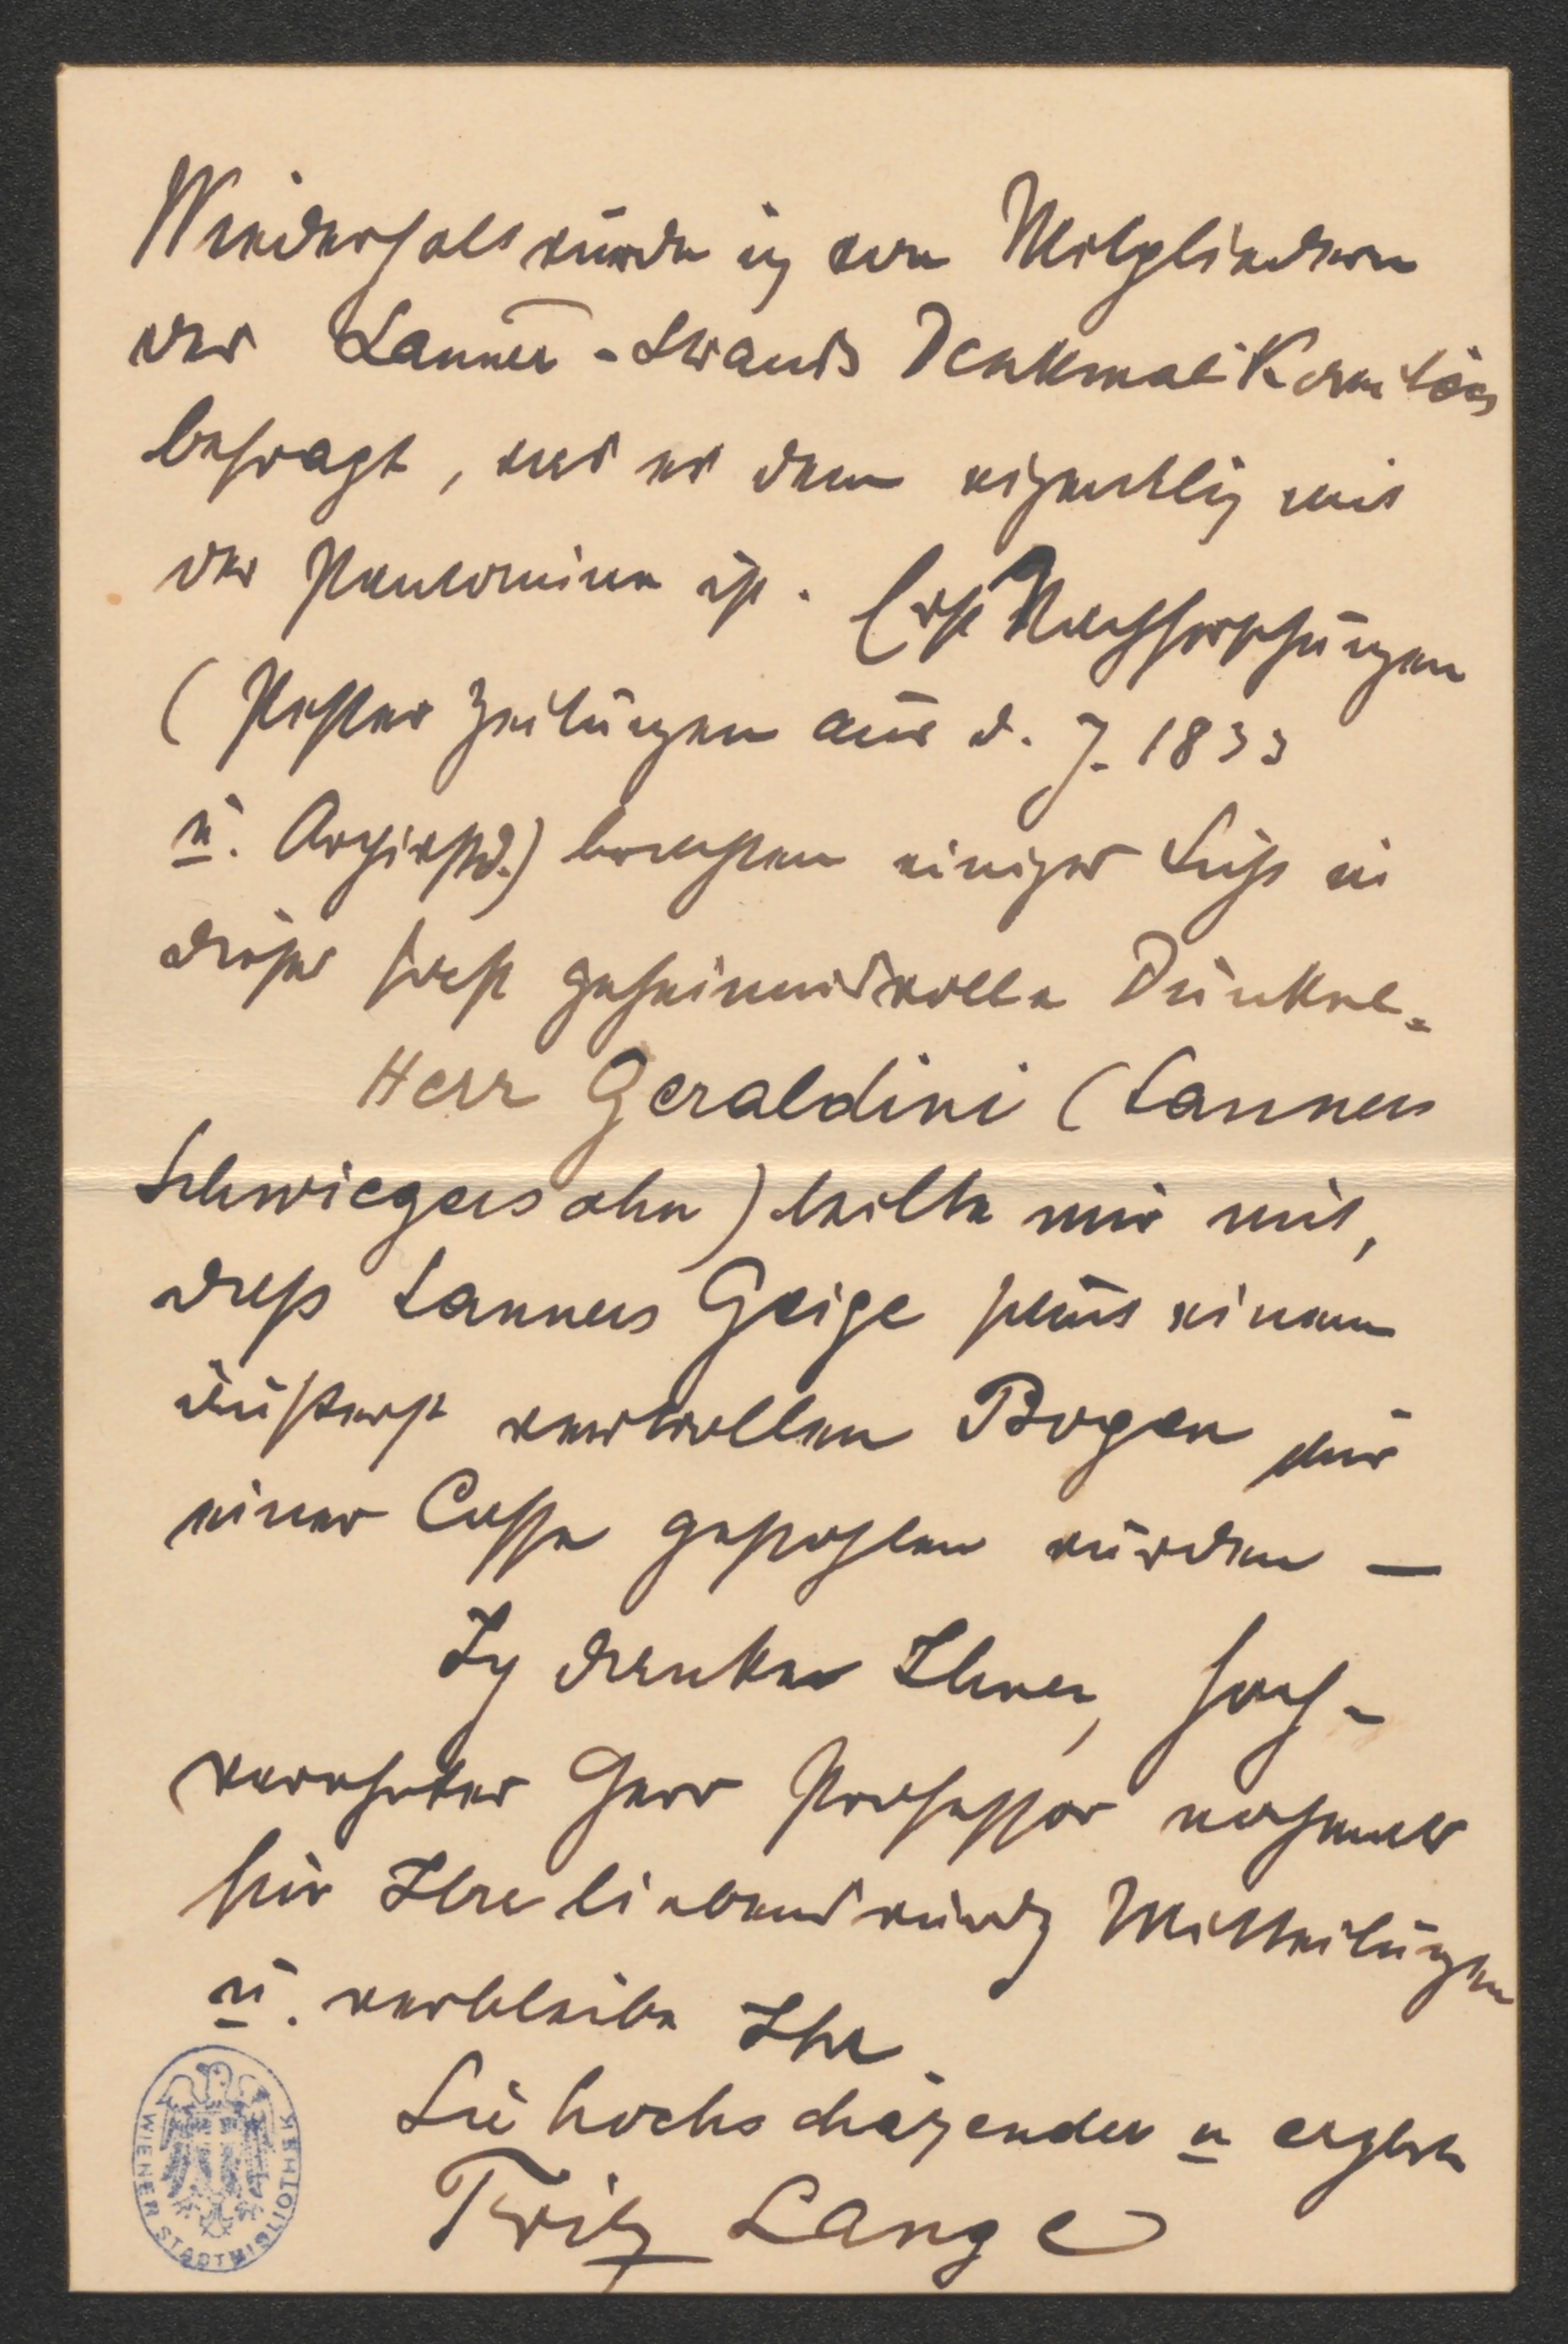 Wiederholt wurde ich von Mitgliedern
des Lanner-Strauß Denkmal Komitées
befragt, was es denn eigentlich mit
der Pantomime ist. Erst Nachforschungen
(Pester Zeitungen aus d. J. 1833
u. Archivstd.) brachten einiges Licht in
dieses fast geheimnisvolle Dunkel.
Herr Geraldini (Lanners
Schwiegersohn) teilte mir mit,
dass Lanners Geige samt einem
äußerst wertvollen Bogen aus
einer Cassa gestohlen wurden —
Ich danke Ihnen, hoch-
verehrter Herr Professor nochmals
für Ihre liebenswürdg Mitteilungen
u. verbleibe Ihr
Sie hochschäzender u ergbst
Fritz Lange
WIENER STADTBIBLIOTHEK